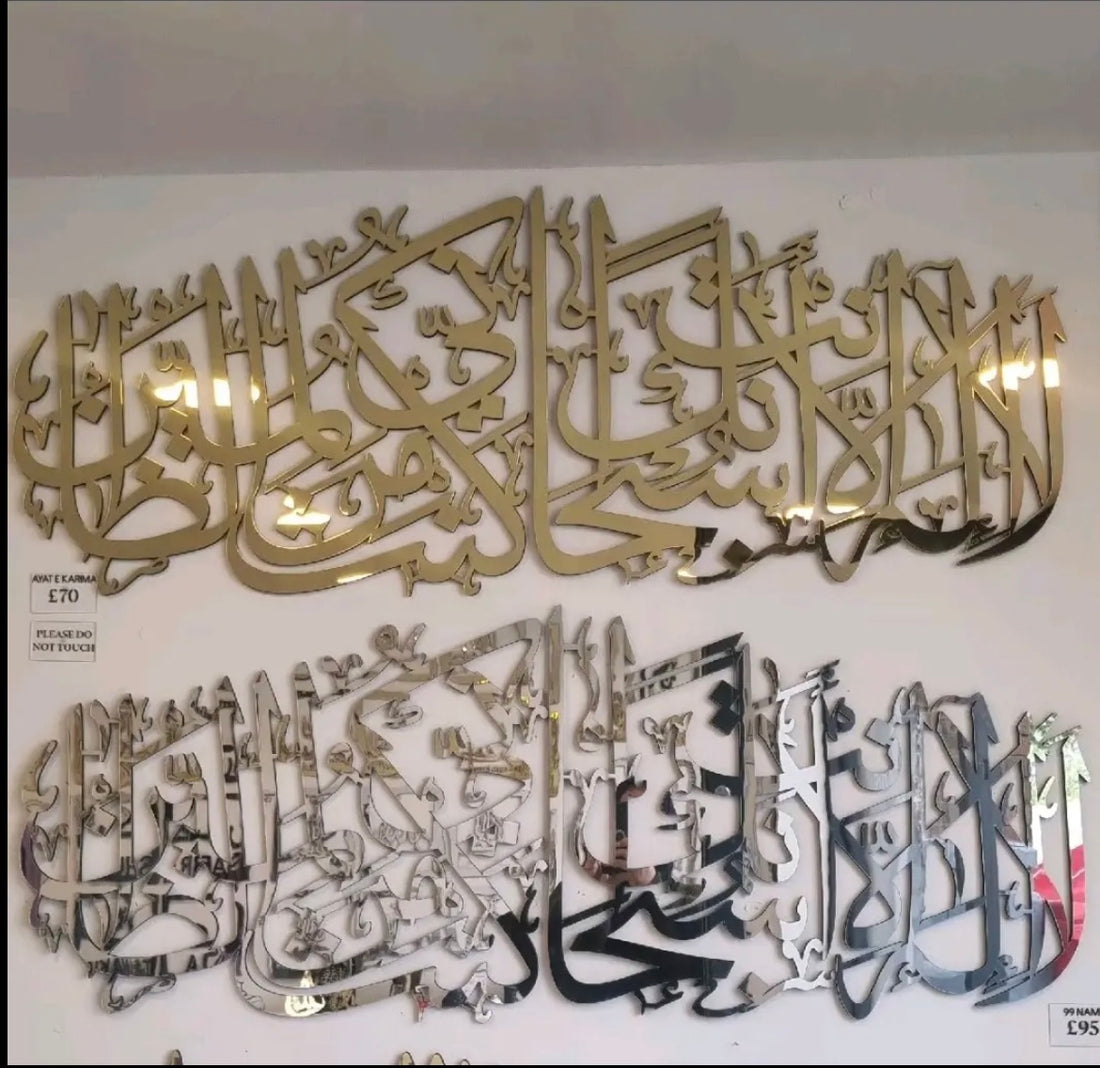 لا إله إلا أنت سبحانك إني كنت من الظالمين
AYAT E KARIMA
£70
PLEASE DO
NOT TOUCH
لا إله إلا أنت سبحانك إني كنت من الظالمين
99 NAM
£95